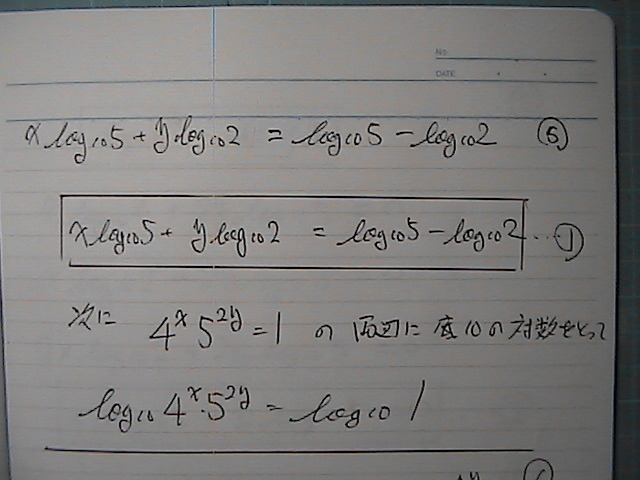 NO.
DATE
x log₁₀5 + y log₁₀2 = log₁₀5 − log₁₀2 ⑥
x log₁₀5 + y log₁₀2 = log₁₀5 − log₁₀2 … ①
次に 4ˣ 5²ʸ = 1 の 両辺に 底10の対数をとって
log₁₀ 4ˣ・5²ʸ = log₁₀ 1